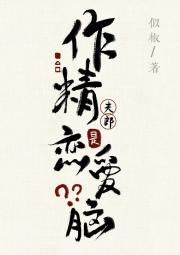 作精
夫郎
是
恋愛脑
??
似椒/著